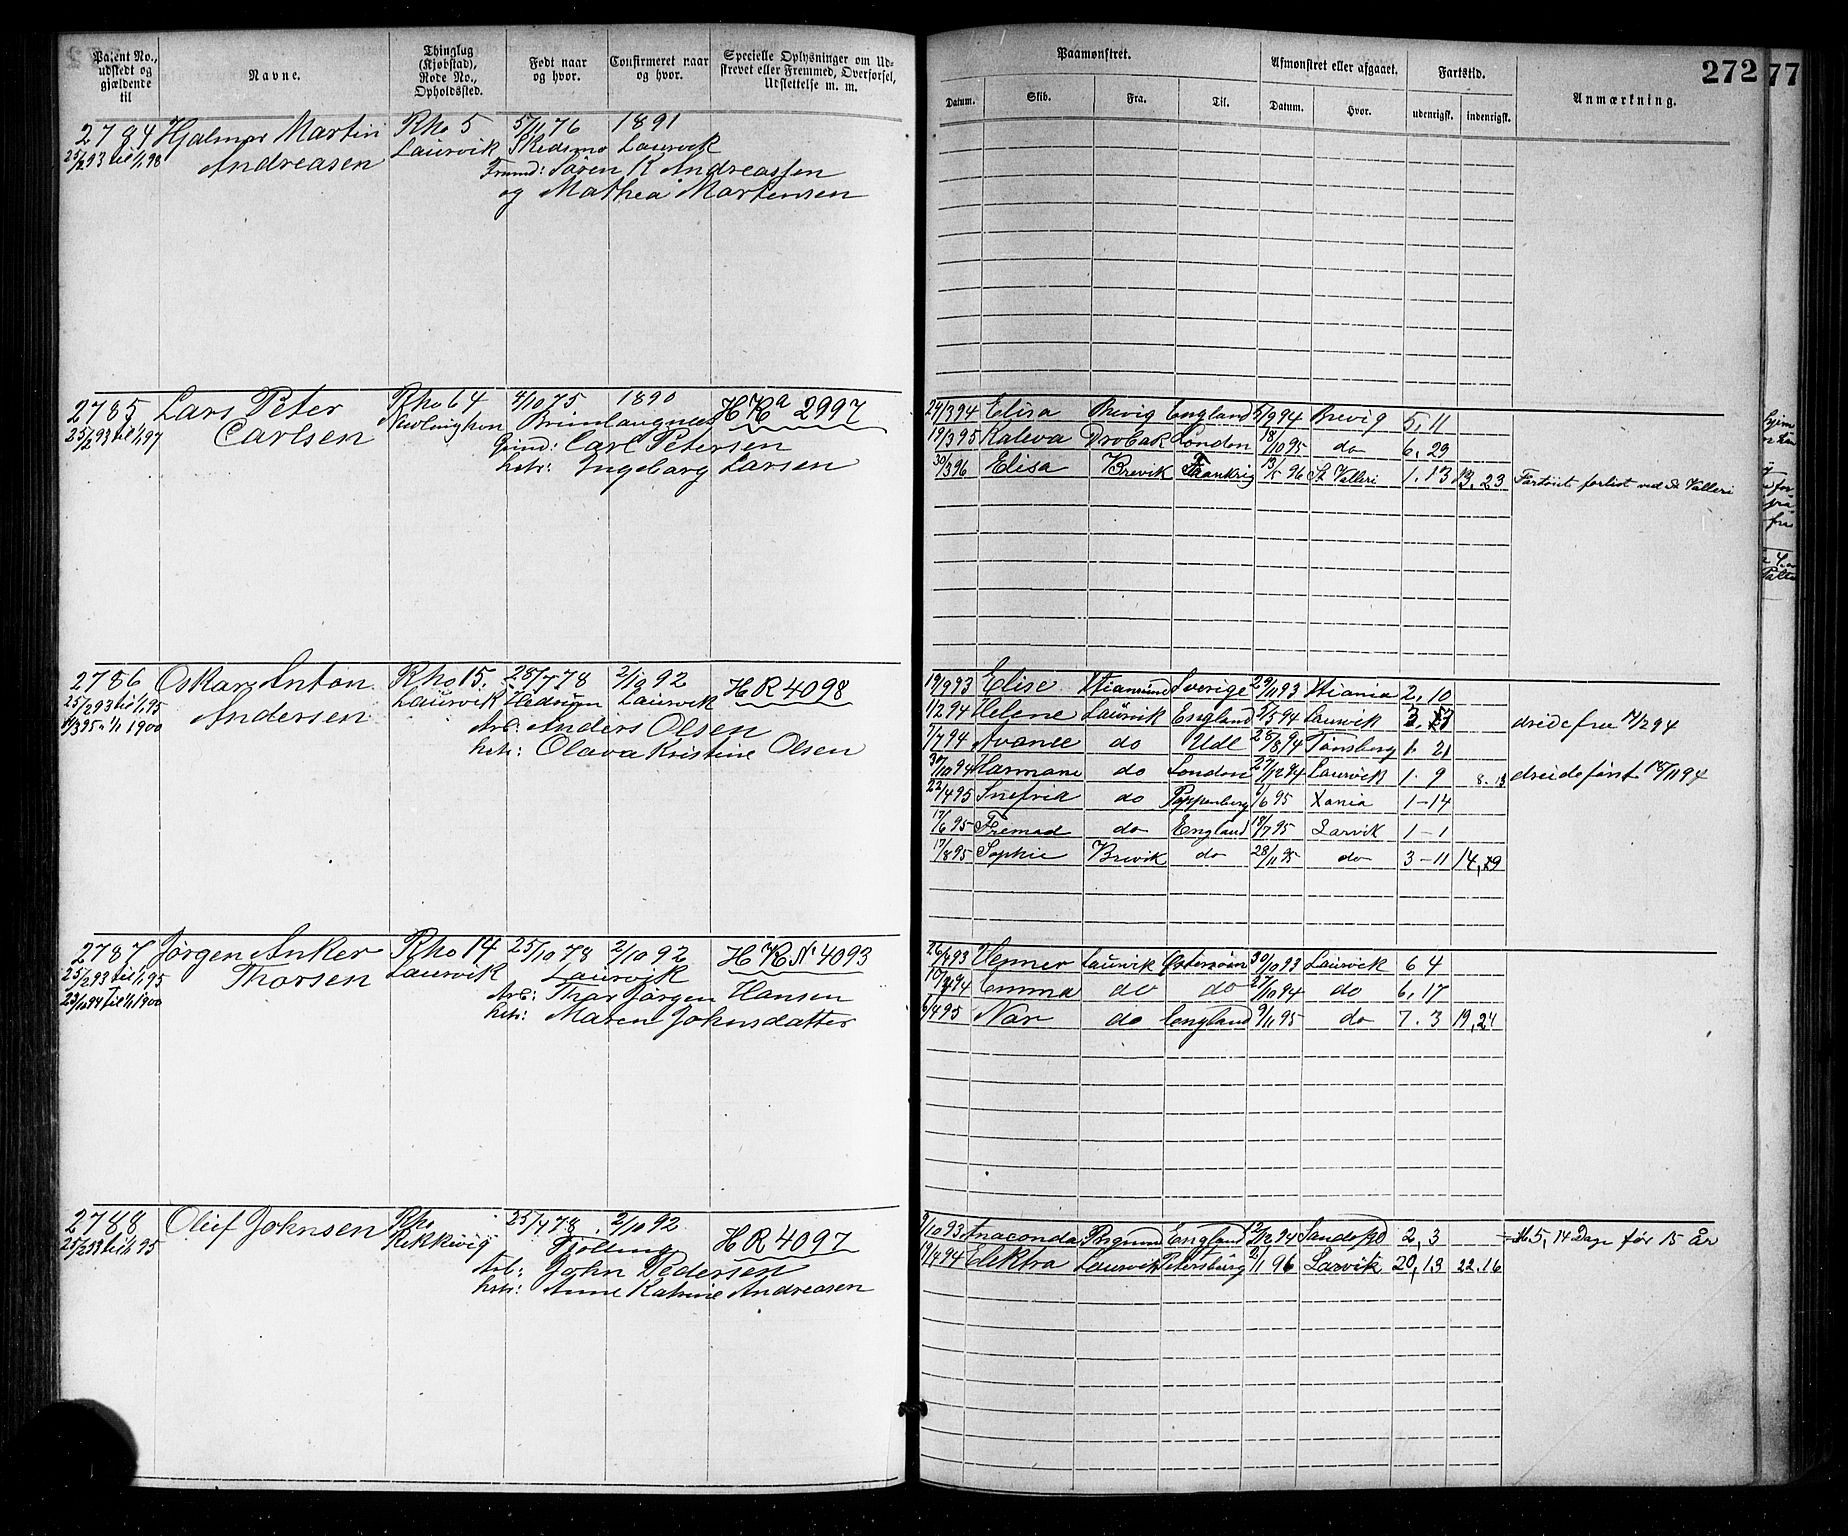 Patent No., udstedt og gjældende til
Navne.
Thinglag (Kjøbstad), Rode No., Opholdssted.
Født naar og hvor.
Confirmeret naar og hvor.
Specielle Oplysninger om Udstrevet eller Fremmed, Overførsel, Udslettelse m. m.
Paamønstret.
Afmønstret eller afgaaet.
Fartstid.
Anmærkning.
272
77
Datum.
Skib.
Fra.
Til.
Datum.
Hvor.
udenrigsk.
indenrigsk.
2784 Hjalmar Martin Rho 5 5/11 76 1891
25/2 93 til 1/1 98 Andreasen Laurvik Skedsmo Laurvik
Søren K Andreassen
og Mathea Martensen
2785 Lars Peter Rho 64 1890 2997
25/2 93 til 1/1 97 Carlsen Brunlaugnes
Carl Petersen
Ingeborg Larsen
24/3 94 Elisa Brevig England 5/9 94 Brevig 5, 11
19/3 95 Kaleva Drobak London 18/10 95 do 6, 29
30/3 96 Elisa Brevik Frankrig 13/5 96 St Valleri 1. 13 13, 23 forlist ved St Valleri
2786 Oskar Anton Rho 15. 28/7 78 2/10 92 HR 4098
25/2 93 til 1/1 95 Andersen Laurvik Hedrum Laurvik
1/1 1900 Arb: Anders Olsen
hstr: Olava Kristine Olsen
19/9 93 Elise Sverige 29/11 93 Xtiania 2, 10
1/2 94 Helene Laurvik England 5/5 94 Laurvik
7/7 94 Avance do Udl 28/8 94 Tønsberg 1. 21
30/10 94 Harmanu do London 27/12 94 Laurvik 1. 9
22/4 95 Snefrid do Pappenberg 6/6 95 Xania 1-14
17/6 95 Fremad do England 18/7 95 Larvik 1-1
17/8 95 Sophie Brevik do 28/11 95 do 3-11
2787 Jørgen Anker Rho 14 25/10 78 2/10 92 HR No 4093
25/2 93 til 1/1 95 Thorsen Laurvik Laurvik
til 1/1 1900 Arb: Thor Jørgen Hansen
hstr: Maren Johnsdatter
26/4 93 Laurvik Østersøen 30/10 93 Laurvik 6 4
Emma do do 27/10 94 do 6, 17
6/4 95 Nar do England 9/11 95 do 7. 3 19, 24
2788 Oluf Johnsen Rho 25/4 78 2/10 92 HR 4097
25/2 93 til 1/1 95 Rekkevig Tjølling
Arb: John Pedersen
hstr: Anne Katrine Andreasen
9/10 93 Anaconda Porsgrund England Sandefjd 2, 3 5, 14 Dage før 15 År
19/4 94 Elektra Laurvik Petersburg 2/1 96 Larvik 20, 13 22. 16